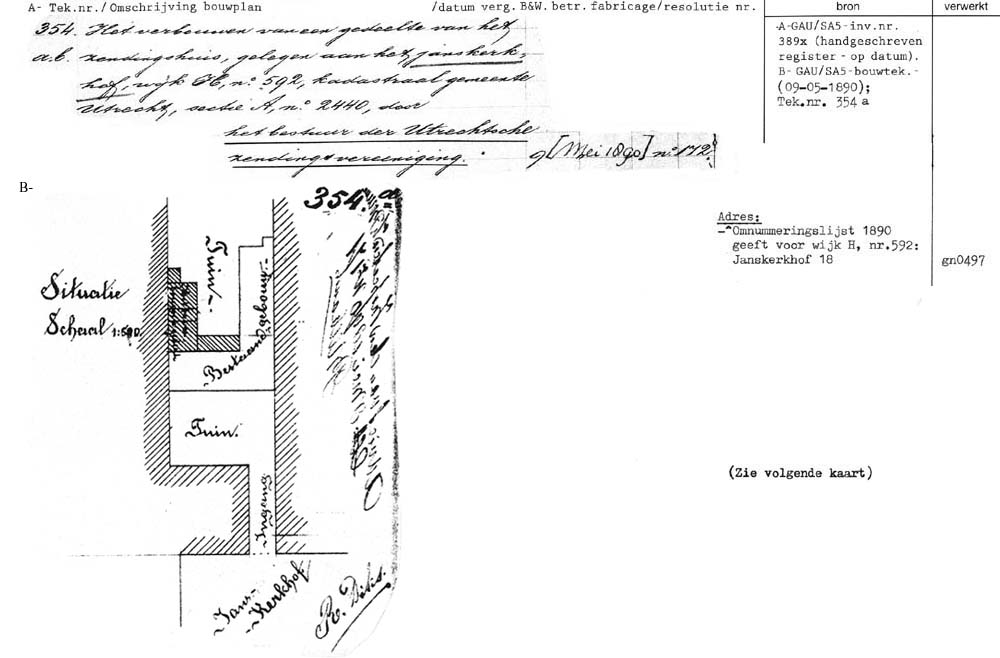 A- Tek.nr./ Omschrijving bouwplan /datum verg. B&W. betr. fabricage/resolutie nr. bron verwerkt
354. Het verbouwen van een gedeelte van het
a.b. zendingshuis, gelegen aan het Janskerk-
hof, wijk H, n.o 592, kadastraal gemeente
Utrecht, sectie A, n.o 2440, door
het bestuur der Utrechtsche
zendingsvereeniging. 9 [Mei 1890] n.o 172.
A-GAU/SA5-inv.nr.
389x (handgeschreven
register - op datum).
B- GAU/SA5-bouwtek.-
(09-05-1890);
Tek.nr. 354 a
B-
354. a
Adres:
Omnummeringslijst 1890
geeft voor wijk H, nr.592:
Janskerkhof 18 gn0497
Situatie
Schaal 1:500.
Tuin.
Bestaand gebouw.
Tuin.
Ingang
(Zie volgende kaart)
Jans-
Kerkhof